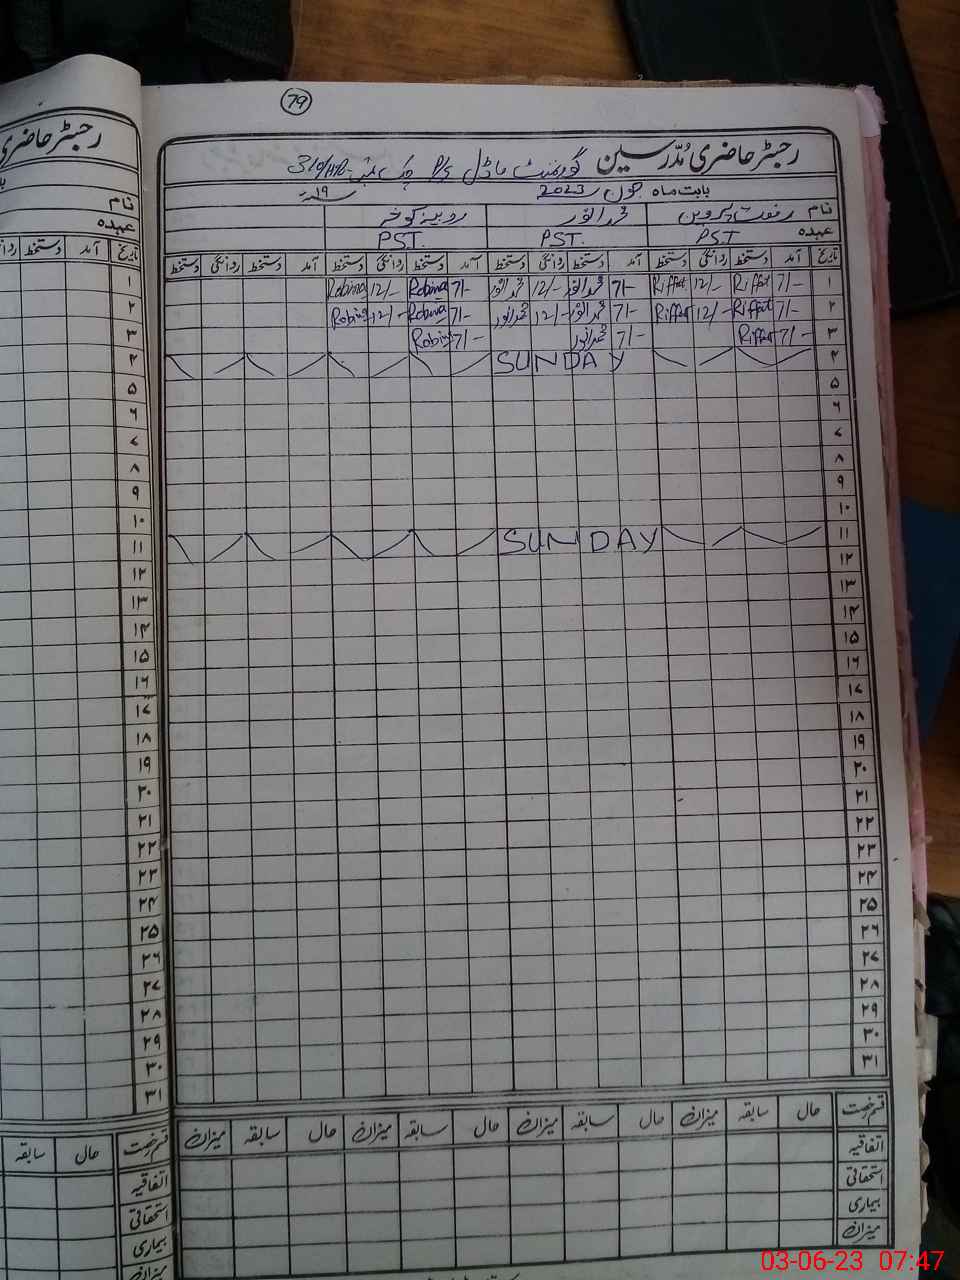 79
رجسٹر حاضری مدرسین گورنمنٹ ماڈل P/S چک نمبر 310/HR
بابت ماہ جون 2023 ۱۹ء
نام رفعت پروین محمد انور روبینہ کوثر
عہدہ PST PST. PST.
تاریخ آمد دستخط روانگی دستخط آمد دستخط روانگی دستخط آمد دستخط روانگی دستخط آمد دستخط روانگی دستخط
۱ 7/- Riffat 12/- Riffat 7/- محمد انور 12/- محمد انور 7/- Robina 12/- Robina
۲ 7/- Riffat 12/- Riffat 7/- محمد انور 12/- محمد انور 7/- Robina 12/- Robina
۳ 7/- Riffat 7/- محمد انور 7/- Robina
۴ SUNDAY
۵
۶
۷
۸
۹
۱۰
۱۱ SUNDAY
۱۲
۱۳
۱۴
۱۵
۱۶
۱۷
۱۸
۱۹
۲۰
۲۱
۲۲
۲۳
۲۴
۲۵
۲۶
۲۷
۲۸
۲۹
۳۰
۳۱
قسم رخصت حال سابقہ میزان حال سابقہ میزان حال سابقہ میزان حال سابقہ میزان
اتفاقیہ
استحقاقی
بیماری
میزان
رجسٹر حاضری
نام
عہدہ
تاریخ آمد دستخط
۱
۲
۳
۴
۵
۶
۷
۸
۹
۱۰
۱۱
۱۲
۱۳
۱۴
۱۵
۱۶
۱۷
۱۸
۱۹
۲۰
۲۱
۲۲
۲۳
۲۴
۲۵
۲۶
۲۷
۲۸
۲۹
۳۰
۳۱
قسم رخصت حال سابقہ
اتفاقیہ
استحقاقی
بیماری
میزان
03-06-23 07:47